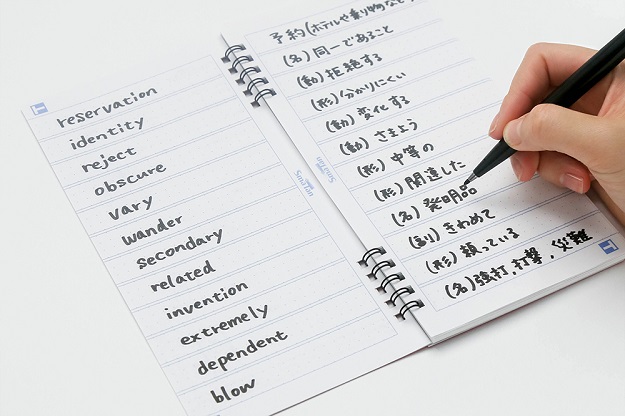 reservation
identity
reject
obscure
vary
wander
secondary
related
invention
extremely
dependent
blow
予約(ホテルや乗り物など
(名)同一であること
(動)拒絶する
(形)分かりにくい
(動)変化する
(動)さまよう
(形)中等の
(形)関連した
(名)発明品
(副)きわめて
(形)頼っている
(名)強打,打撃,災難